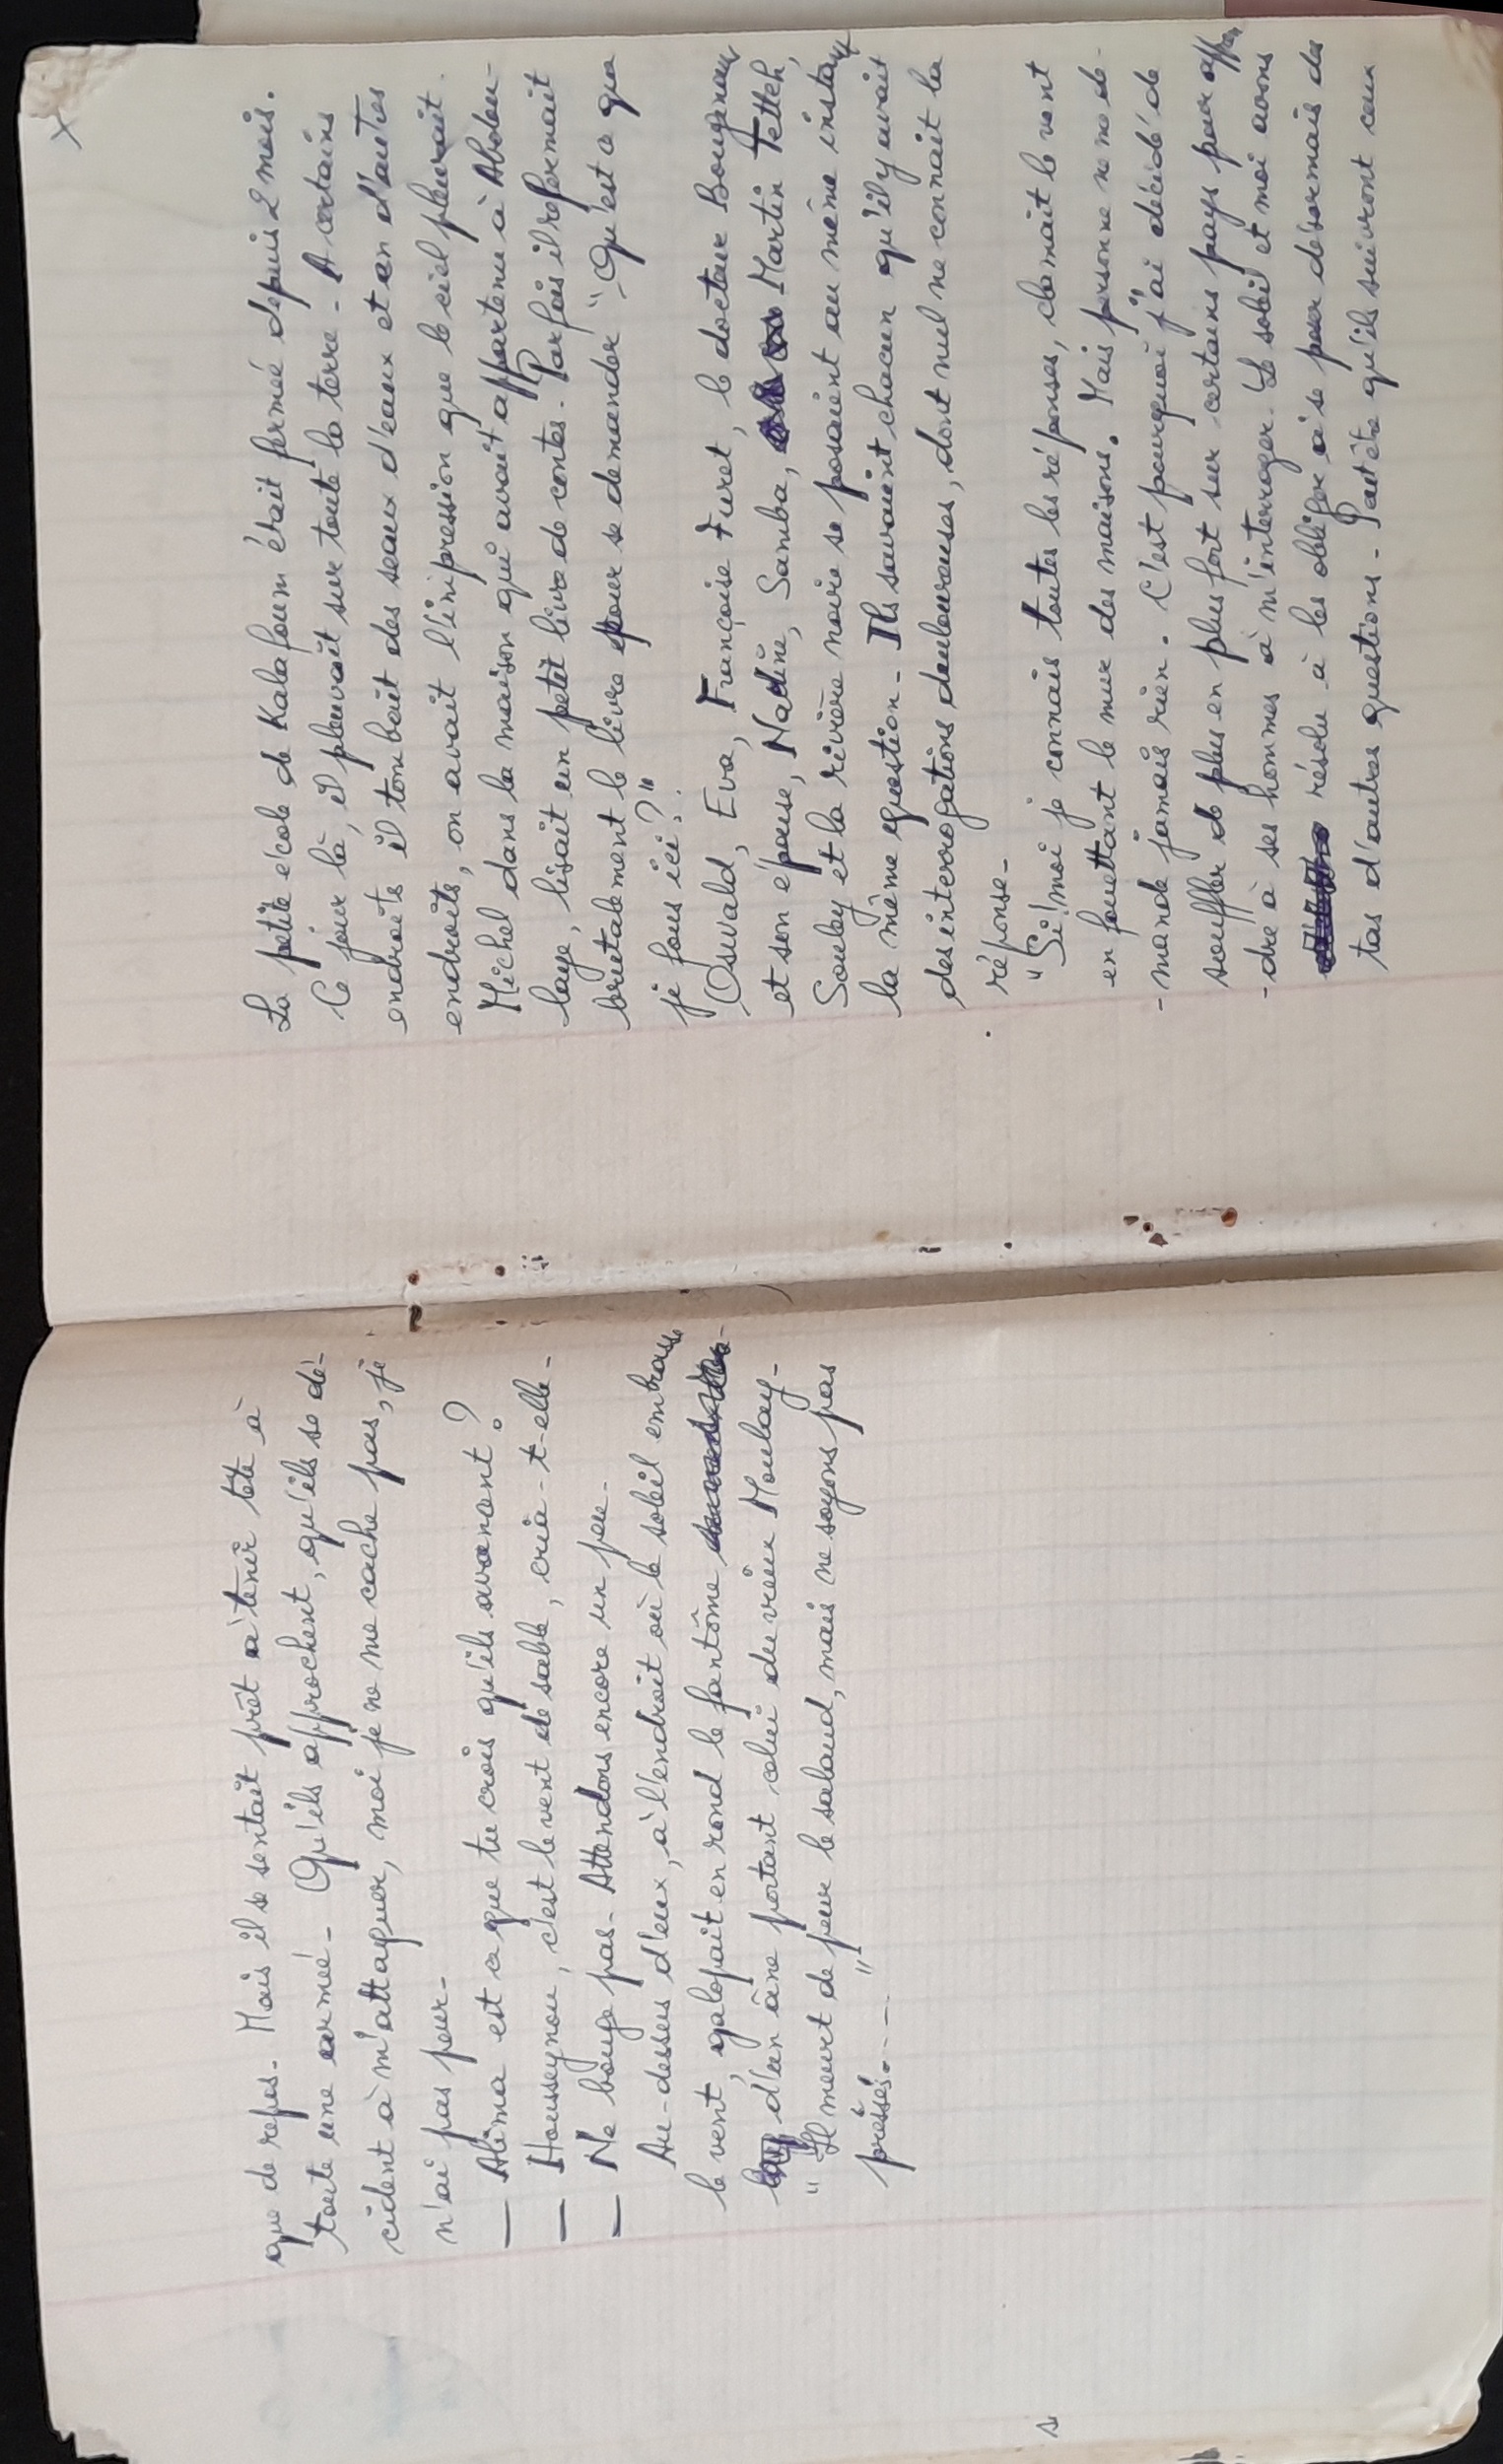 que de repos. Mais il se sentait prêt à tenir tête à
toute une armée - Qu'ils approchent, qu'ils se dé-
cident à m'attaquer, moi je ne me cache pas, je
n'ai pas peur -
— Alima est ce que tu crois qu'ils avancent ?
— Housseynou, c'est le vent de sable, cria-t-elle -
— Ne bouge pas - Attendons encore un peu -
Au-dessus d'eux, à l'endroit où le soleil embrasse
le vent, galopait en rond le fantôme
d'un âne portant celui du vieux Moulay -
" Il meurt de peur le salaud, mais ne soyons pas
pressés - - - "
La petite école de Kalafoum était fermée depuis 2 mois.
Ce jour là, il pleuvait sur toute la terre - A certains
endroits il tombait des seaux d'eaux et en d'autres
endroits, on avait l'impression que le ciel pleurait.
Michel dans la maison qui avait appartenu à Abdou-
laye, lisait un petit livre de contes. Parfois il refermait
brutalement le livre pour se demander " Qu'est ce que
je fous ici ? "
Oswald, Eva, Françoise Furet, le docteur Bougenaux
et son épouse, Nadine, Samba, Martin Tetteh,
Souley et la rivière noire se posaient au même instant
la même question - Ils savaient chacun qu'il y avait
des interrogations douloureuses, dont nul ne connait la
réponse -
" Si ! moi je connais toutes les réponses, clamait le vent
en fouettant le mur des maisons. Mais personne ne me de-
- mande jamais rien. C'est pourquoi j'ai décidé de
souffler de plus en plus fort sur certains pays pour appren
- dre à ses hommes à m'interroger. Le soleil et moi avons
résolu à les obliger à se poser désormais des
tas d'autres questions - Peut être qu'ils suivront ceux